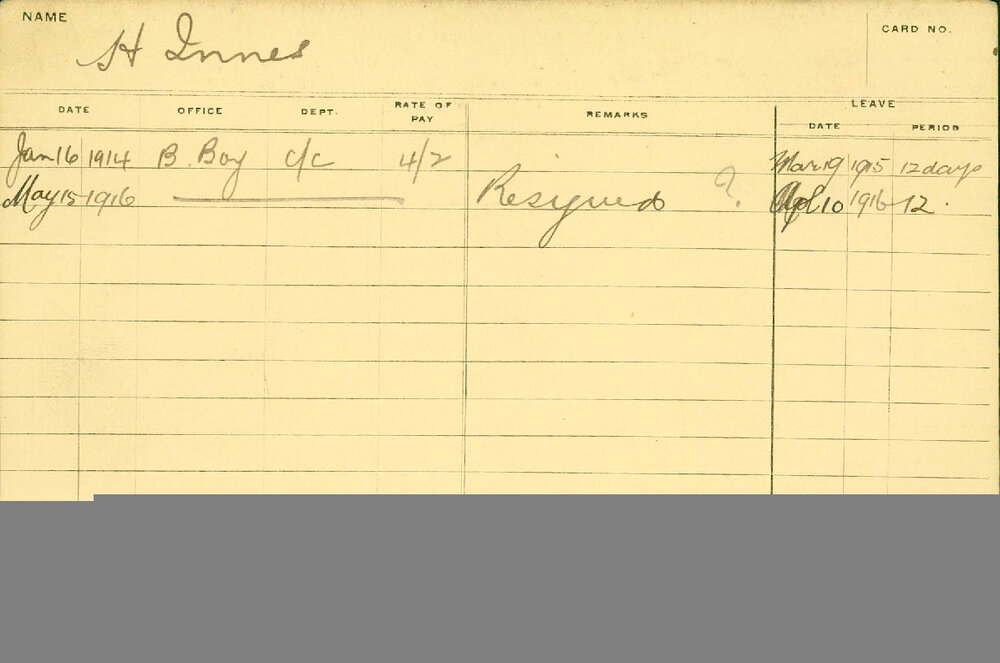 NAME
H Innes
CARD NO.
DATE OFFICE DEPT. RATE OF PAY REMARKS LEAVE
DATE PERIOD
Jan 16 1914 B. Boy C/C 4/2 Mar 19 1915 12 days
May 15 1916 Resigned ? Apl 10 1916 12.